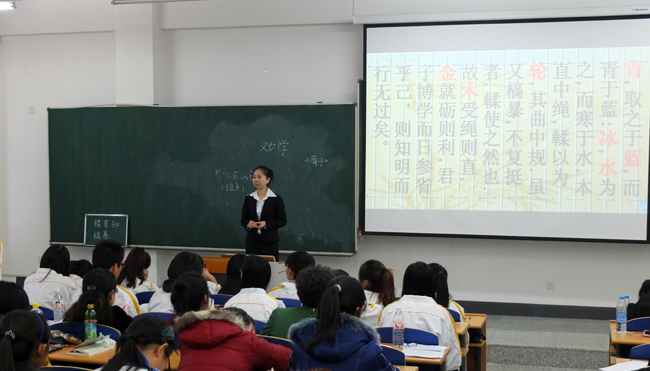 劝学
《荀子》
輮有知
槁暴
青，取之于蓝，而
青于蓝；冰，水为
之，而寒于水。木
直中绳，輮以为
轮，其曲中规。虽
又槁暴，不复挺
者，輮使之然也。
故木受绳则直，
金就砺则利，君
子博学而日参省
乎己，则知明而
行无过矣。